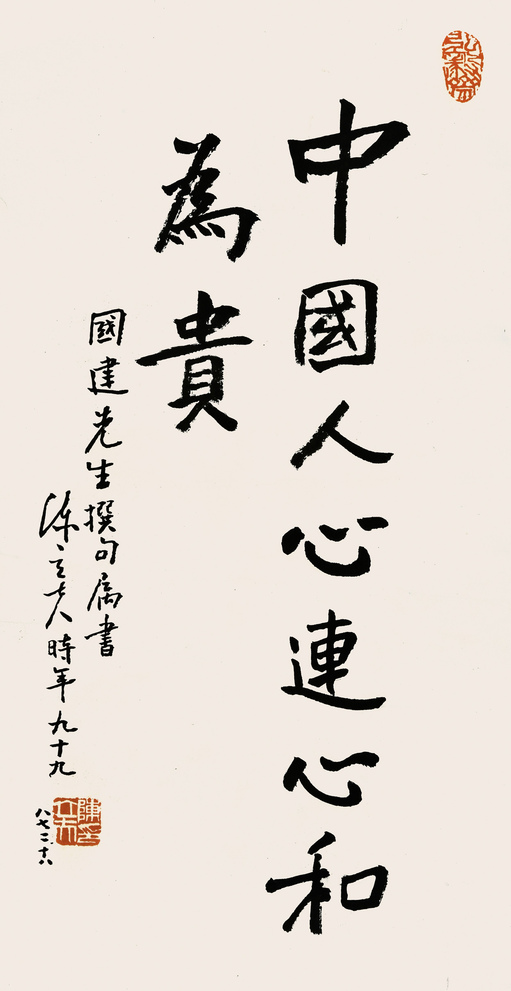 中國人心連心和
為貴
國建先生撰句属書
陳立夫時年九十九
八七、二、十八
陳立夫印